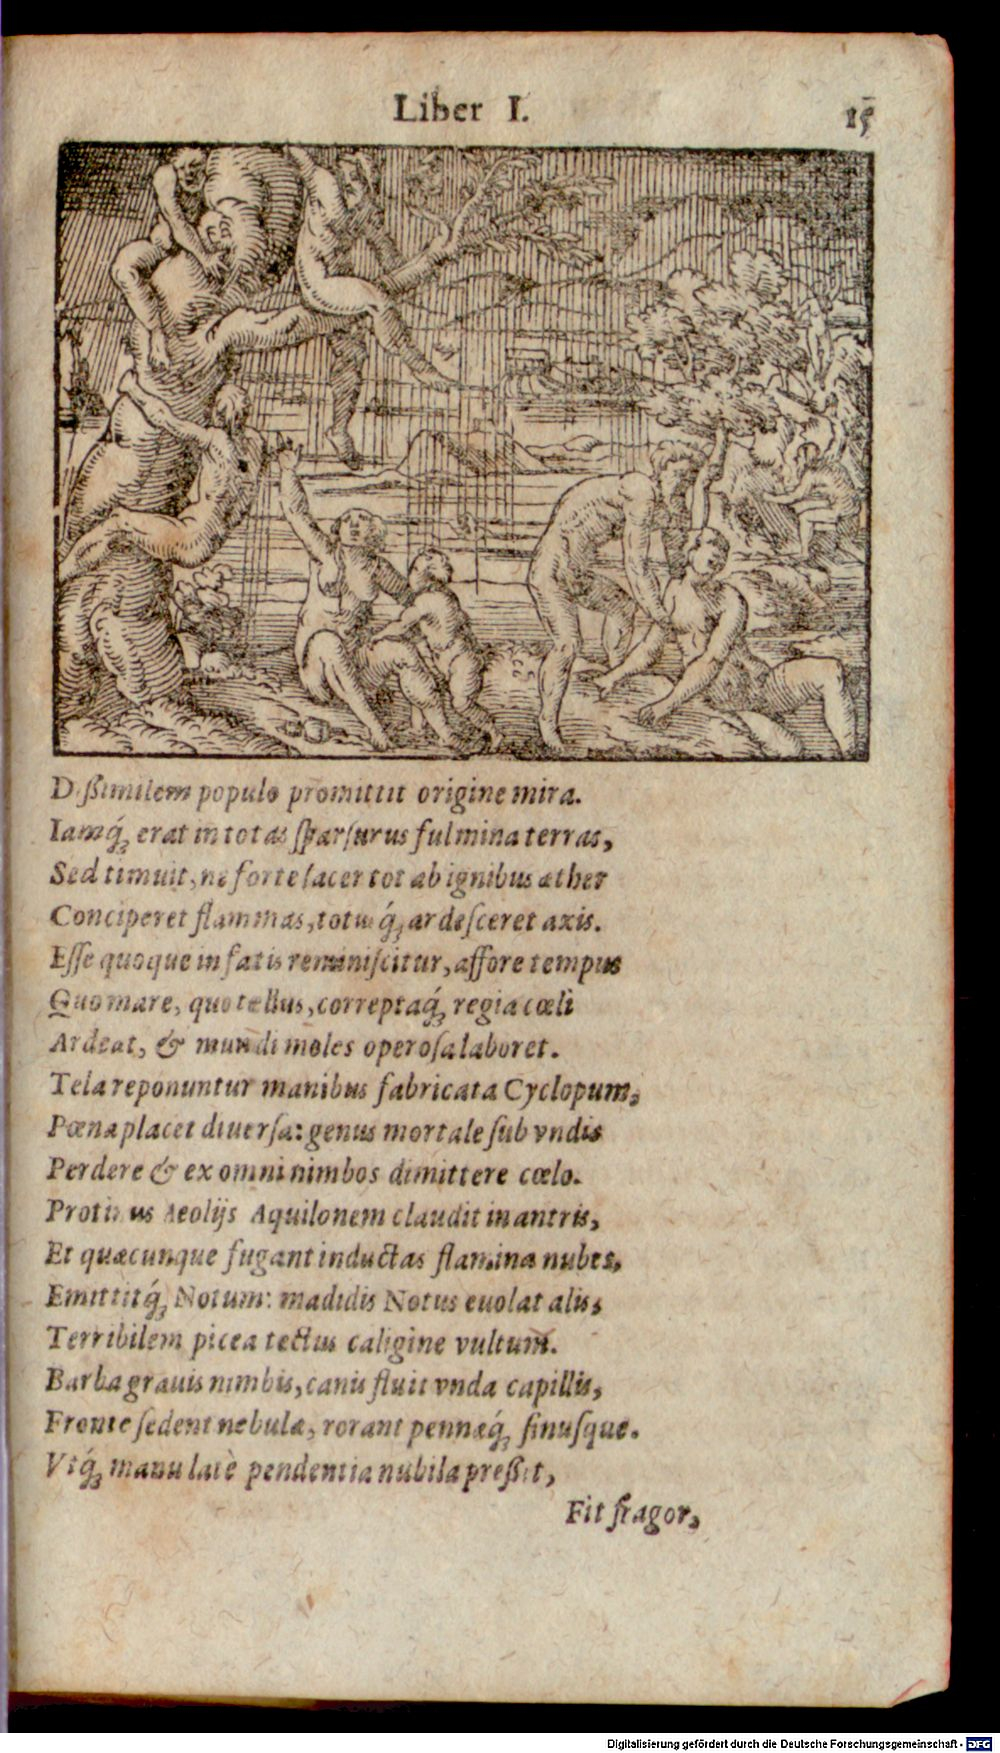 Liber I. 15
Dißimilem populo promittit origine mira.
Iamq́ꝫ erat in totas ſparſurus fulmina terras,
Sed timuit, ne forte ſacer tot ab ignibus æther
Conciperet flammas, totusq́ꝫ ardeſceret axis.
Eſſe quoque in fatis reminiſcitur, affore tempus
Quo mare, quo tellus, correptaq́ꝫ regia cœli
Ardeat, & mundi moles operoſa laboret.
Tela reponuntur manibus fabricata Cyclopum,
Pœna placet diuerſa: genus mortale ſub vndis
Perdere & ex omni nimbos dimittere cœlo.
Protinus Aeolijs Aquilonem claudit in antris,
Et quæcunque fugant inductas flamina nubes,
Emittitq́ꝫ Notum: madidis Notus euolat alis,
Terribilem picea tectus caligine vultum.
Barba grauis nimbis, canis fluit vnda capillis,
Fronte ſedent nebulæ, rorant pennæq́ꝫ ſinuſque.
Vtq́ꝫ manu latè pendentia nubila preßit,
Fit fragor,
Digitalisierung gefördert durch die Deutsche Forschungsgemeinschaft - DFG